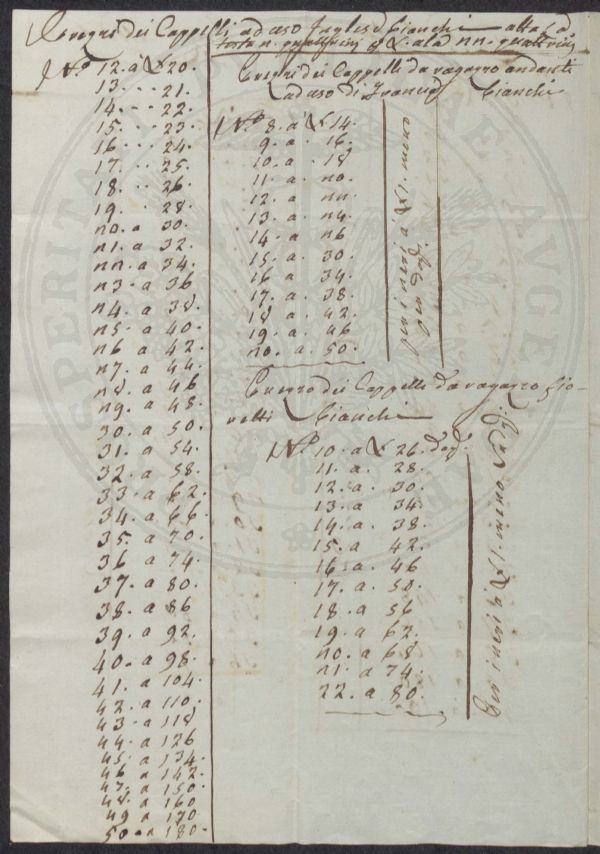 Prezzi dei Cappelli ad uso Inglese bianchi alta
quattrini 8 ala nn. quattrini
N.º 12. a £ 20.
13. .. 21.
14. .. 22.
15. .. 23.
16. .. 24.
17. .. 25.
18. .. 26.
19. .. 28.
no. a 30.
n1. a 32.
nn. a 34.
n3. a 36
n4. a 38.
n5. a 40.
n6 a 42.
n7. a 44.
n8. a 46
n9. a 48.
30. a 50.
31. a 54.
32. a 58.
33. a 62.
34. a 66.
35. a 70.
36 a 74.
37. a 80.
38. a 86
39. a 92.
40. a 98.
41. a 104.
42. a 110.
43. a 118
44. a 126
45. a 134.
46 a 142.
47. a 150.
48. a 160
49 a 170
50. a 180.
Prezzi dei Cappelli da ragazzo andanti
ad uso di Francia bianchi
N.º 8. a £ 14.
9. a 16.
10. a 18
11. a. no.
12. a nn.
13. a. n4.
14. a n6
15. a 30.
16 a 34.
17. a 38.
18 a 42.
19. a 46
no. a. 50.
a £ 1. meno
Prezzo dei Cappelli da ragazzo fio-
retti bianchi
N.º 10. a £ 26.
11. a. 28.
12. a 30.
13. a 34.
14. a 38.
15. a 42.
16. a. 46
17. a 50.
18. a 56
19. a 62.
no. a 68
n1. a 74.
22. a 80.
a £ 1. meno
SPERITA
AVGE